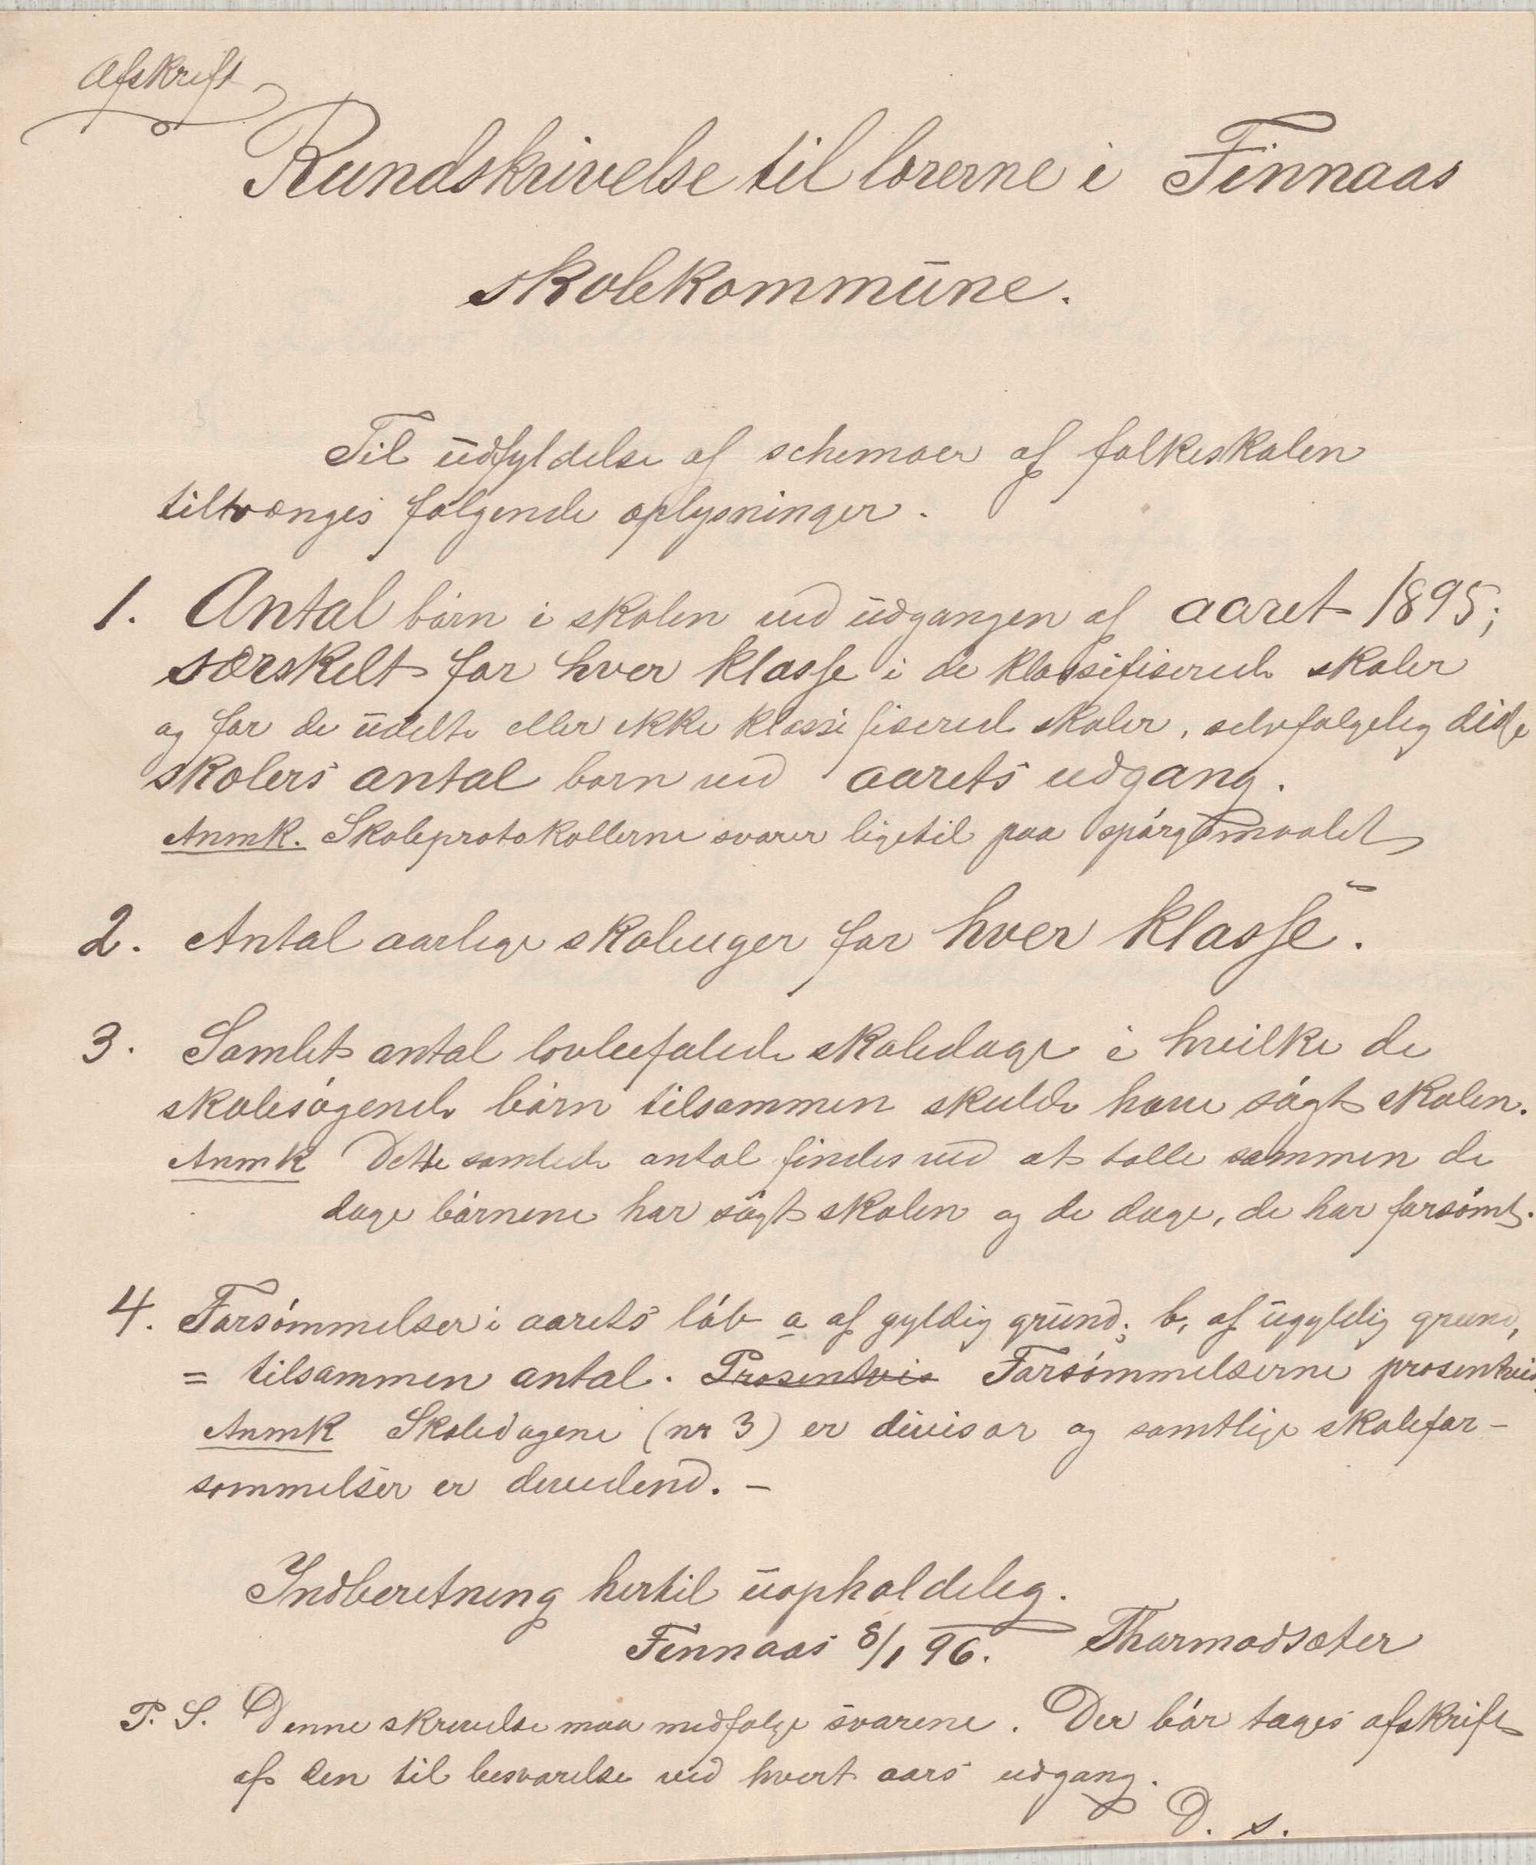 Afskrift
Rundskrivelse til lærerne i Finnaas
skolekommune.
Til udfyldelse af schemaer af folkeskolen
tiltrænges følgende oplysninger.
1. Antal børn i skolen ved udgangen af aaret 1895;
særskelt for hver klasse i de klassifiserede skoler
og for de udelte eller ikke klassifiserede skoler, selvfølgelig disse
skolers antal børn ved aarets udgang.
Anmk. Skoleprotokollerne svarer ligetil paa spørgsmaalet
2. Antal aarlige skoleuger for hver klasse.
3. Samlet antal lovbefalede skoledage i hvilke de
skolesøgende børn tilsammen skulde have søgt skolen.
Anmk Dette samlede antal findes ved at tælle sammen de
dage børnene har søgt skolen og de dage, de har forsømt.
4. Forsømmelser i aarets løb a af gyldig grund; b, af ugyldig grund,
= tilsammen antal. Prosentvis Forsømmelserne prosentvis.
Anmk Skoledagene (nr 3) er divisor og samtlige skolefor-
sømmelser er dividend. -
Indberetning hertil uopholdelig.
Finnaas 8/1 96. Thormodsæter
P. S. Denne skrivelse maa medfølge svarene. Der bør tages afskrift
af den til besvarelse ved hvert aars udgang.
D. s.